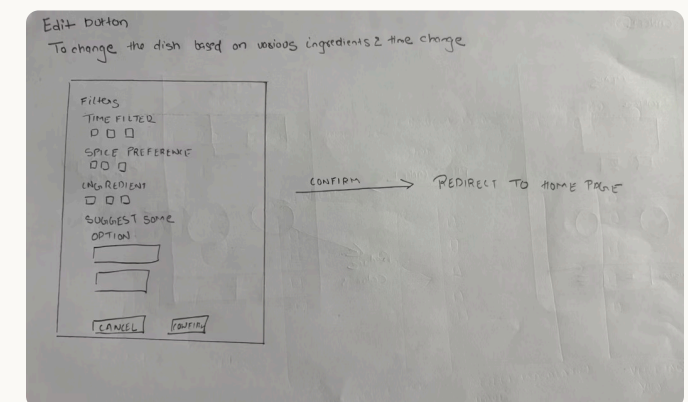 Edit button
To change the dish based on various ingredients & time change
Filters
TIME FILTER
SPICE PREFERENCE
INGREDIENT
SUGGEST SOME
OPTION
CANCEL
CONFIRM
CONFIRM
REDIRECT TO HOME PAGE